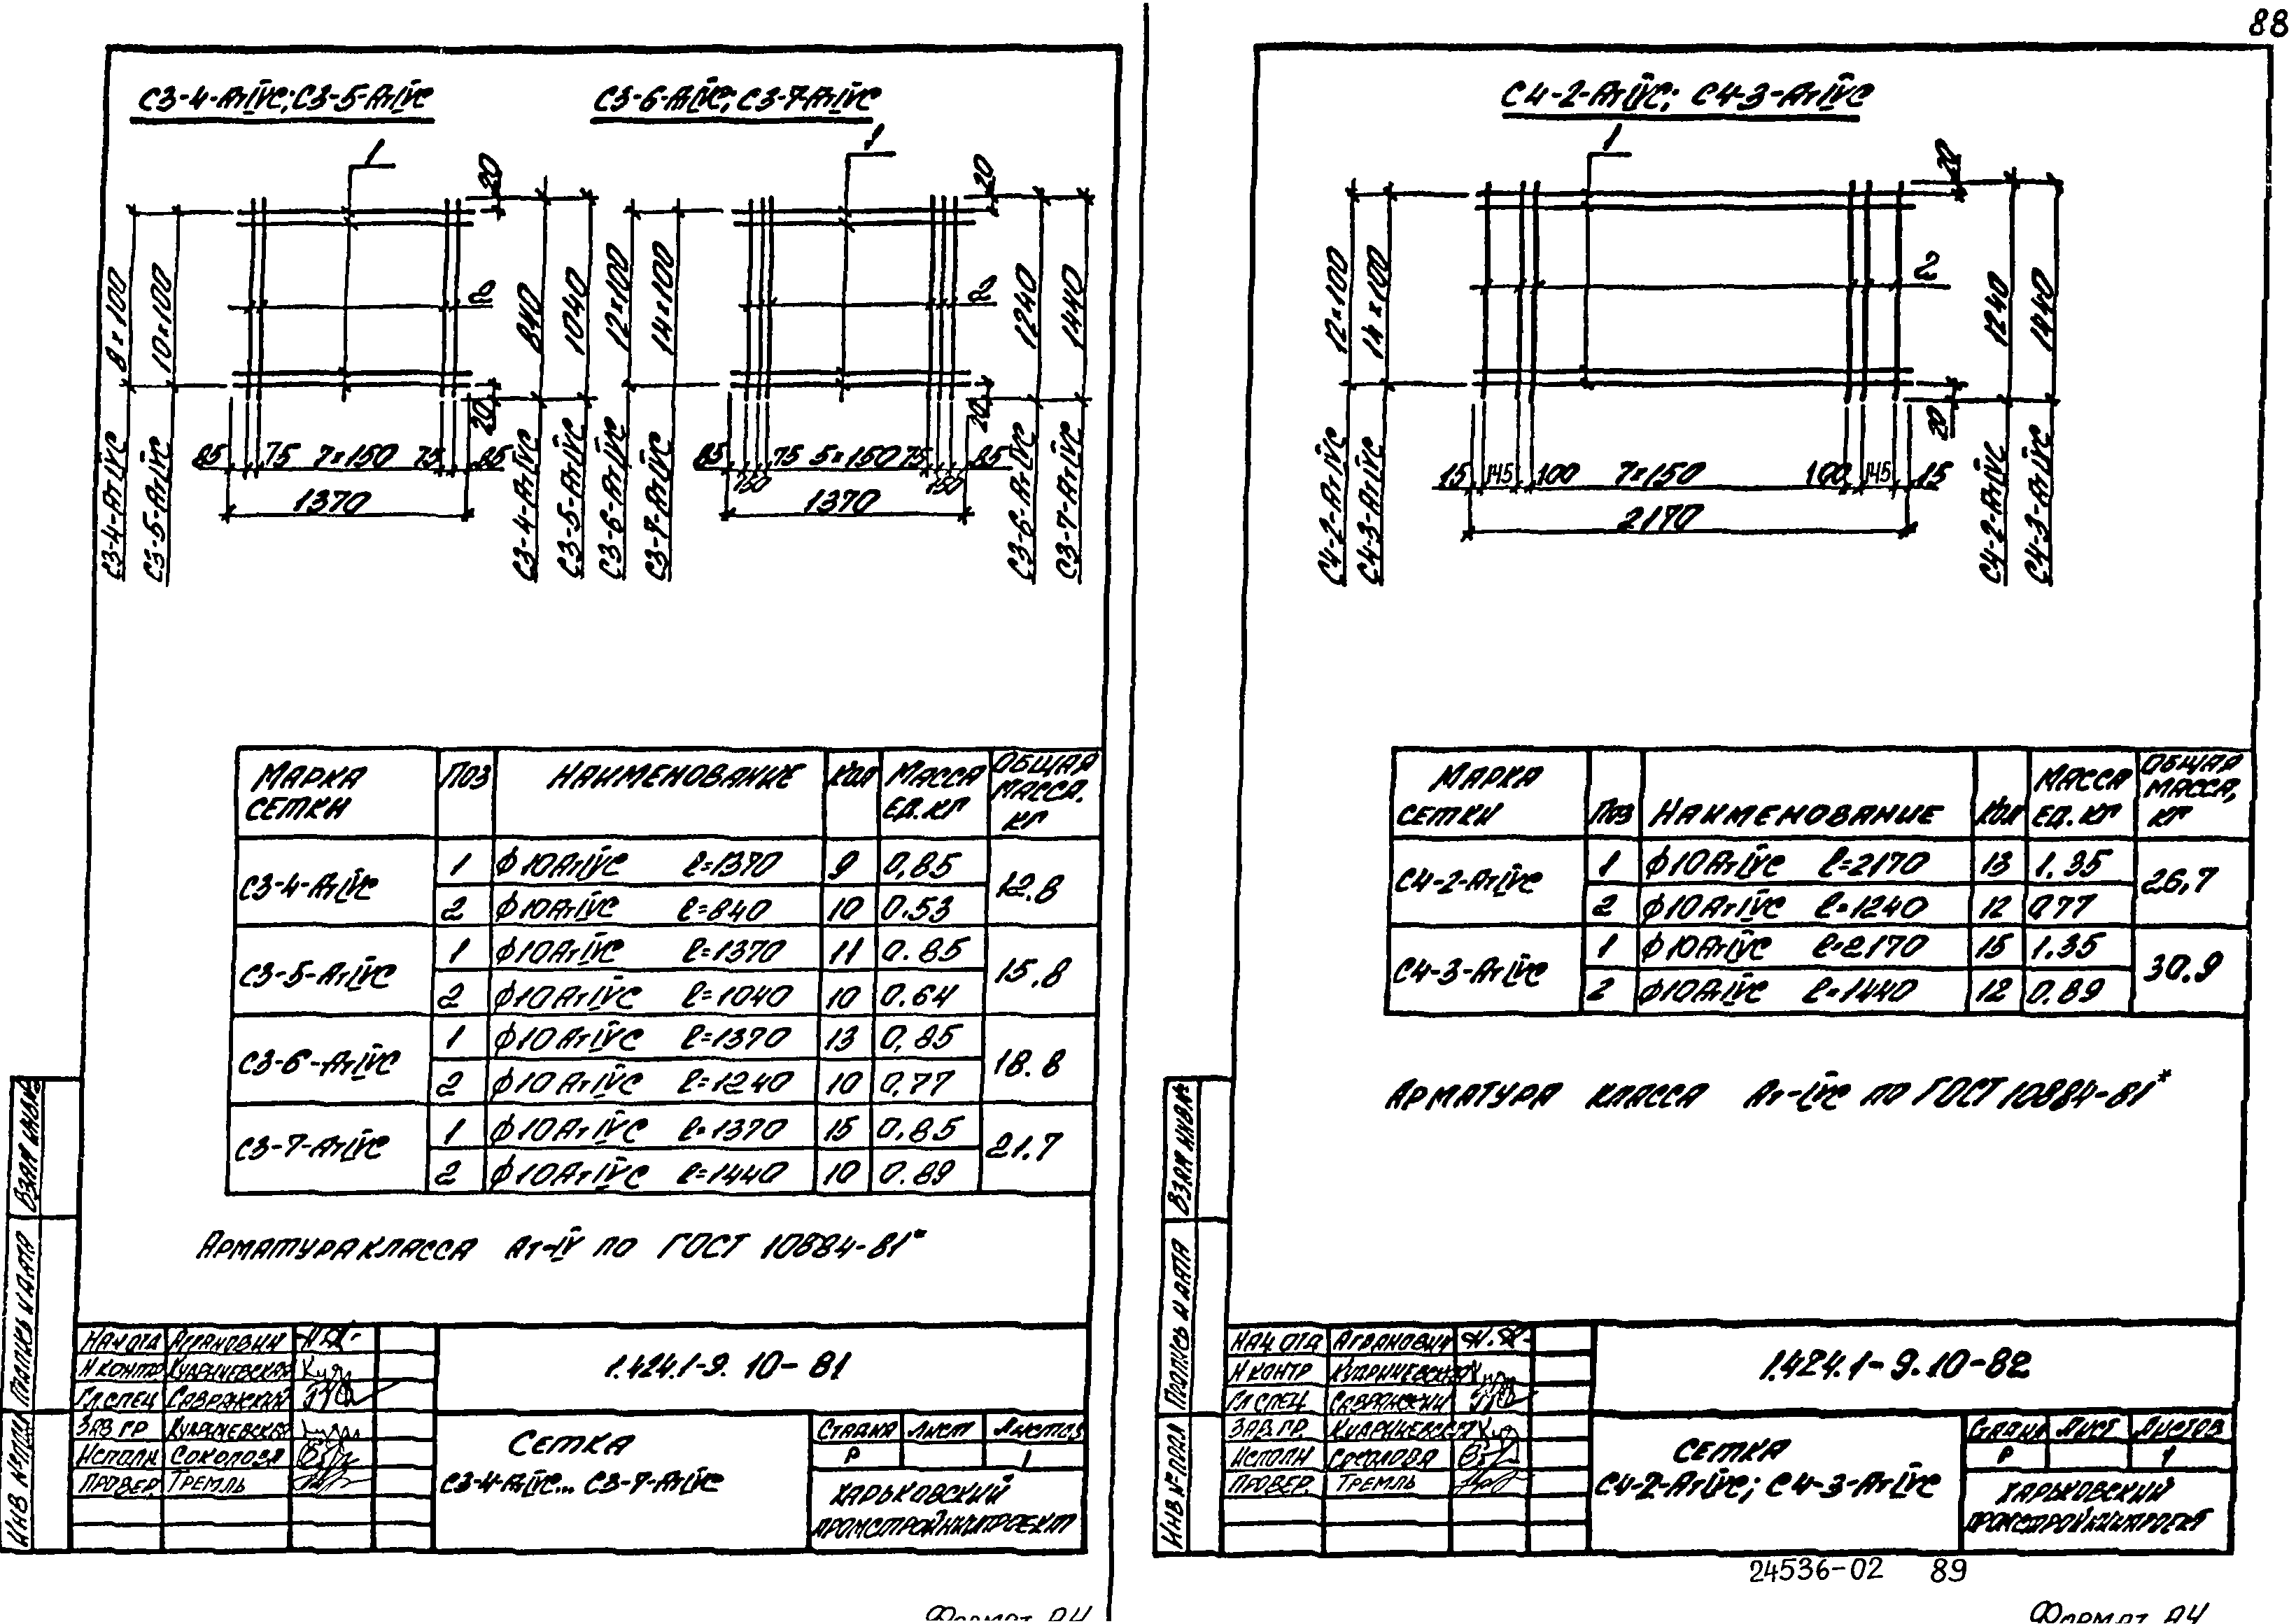 88
С3-4-АтIVС; С3-5-АтIVС
С3-6-АтIVС; С3-7-АтIVС
1
20
8×100
10×100
2
840
1040
20
85 75 7×150 75 85
1370
С3-4-АтIVС
С3-5-АтIVС
С3-4-АтIVС
С3-5-АтIVС
1
20
12×100
14×100
2
1240
1440
20
85 75 5×150 75 85
150 150
1370
С3-6-АтIVС
С3-7-АтIVС
С3-6-АтIVС
С3-7-АтIVС
МАРКА СЕТКИ ПОЗ НАИМЕНОВАНИЕ КОЛ МАССА ЕД. КГ ОБЩАЯ МАССА, КГ
С3-4-АтIVС 1 ф10АтIVС ℓ=1370 9 0,85 12.8
2 ф10АтIVС ℓ=840 10 0.53
С3-5-АтIVС 1 ф10АтIVС ℓ=1370 11 0.85 15.8
2 ф10АтIVС ℓ=1040 10 0.64
С3-6-АтIVС 1 ф10АтIVС ℓ=1370 13 0,85 18.8
2 ф10АтIVС ℓ=1240 10 0,77
С3-7-АтIVС 1 ф10АтIVС ℓ=1370 15 0,85 21.7
2 ф10АтIVС ℓ=1440 10 0.89
АРМАТУРА КЛАССА Ат-IV ПО ГОСТ 10884-81*
ВЗАМ ИНВ№
ПОДПИСЬ И ДАТА
ИНВ №ПОДЛ
НАЧ ОТД АГРАНОВИЧ
Н КОНТР КУДРИЧЕВСКАЯ
ГЛ.СПЕЦ САВРАНСКИЙ
ЗАВ ГР КУДРИЧЕВСКАЯ
ИСПОЛН СОКОЛОВА
ПРОВЕР ТРЕМЛЬ
1.424.1-9.10-81
СЕТКА
С3-4-АтIVС... С3-7-АтIVС
СТАДИЯ ЛИСТ ЛИСТОВ
Р 1
ХАРЬКОВСКИЙ
ПРОМСТРОЙНИИПРОЕКТ
ФОРМАТ А4
С4-2-АтIVС; С4-3-АтIVС
1
20
12×100
14×100
2
1240
1440
20
15 145 100 7×150 100 145 15
2170
С4-2-АтIVС
С4-3-АтIVС
С4-2-АтIVС
С4-3-АтIVС
МАРКА СЕТКИ ПОЗ НАИМЕНОВАНИЕ КОЛ МАССА ЕД. КГ ОБЩАЯ МАССА, КГ
С4-2-АтIVС 1 ф10АтIVС ℓ=2170 13 1.35 26,7
2 ф10АтIVС ℓ=1240 12 0,77
С4-3-АтIVС 1 ф10АтIVС ℓ=2170 15 1.35 30.9
2 ф10АтIVС ℓ=1440 12 0.89
АРМАТУРА КЛАССА Ат-IVС ПО ГОСТ 10884-81*
ВЗАМ ИНВ№
ПОДПИСЬ И ДАТА
ИНВ №ПОДЛ
НАЧ. ОТД АГРАНОВИЧ
Н КОНТР КУДРИЧЕВСКАЯ
ГЛ СПЕЦ САВРАНСКИЙ
ЗАВ. ГР. КУДРИЧЕВСКАЯ
ИСПОЛН СОКОЛОВА
ПРОВЕР. ТРЕМЛЬ
1.424.1-9.10-82
СЕТКА
С4-2-АтIVС; С4-3-АтIVС
СТАДИЯ ЛИСТ ЛИСТОВ
Р 1
ХАРЬКОВСКИЙ
ПРОМСТРОЙНИИПРОЕКТ
24536-02 89
ФОРМАТ А4